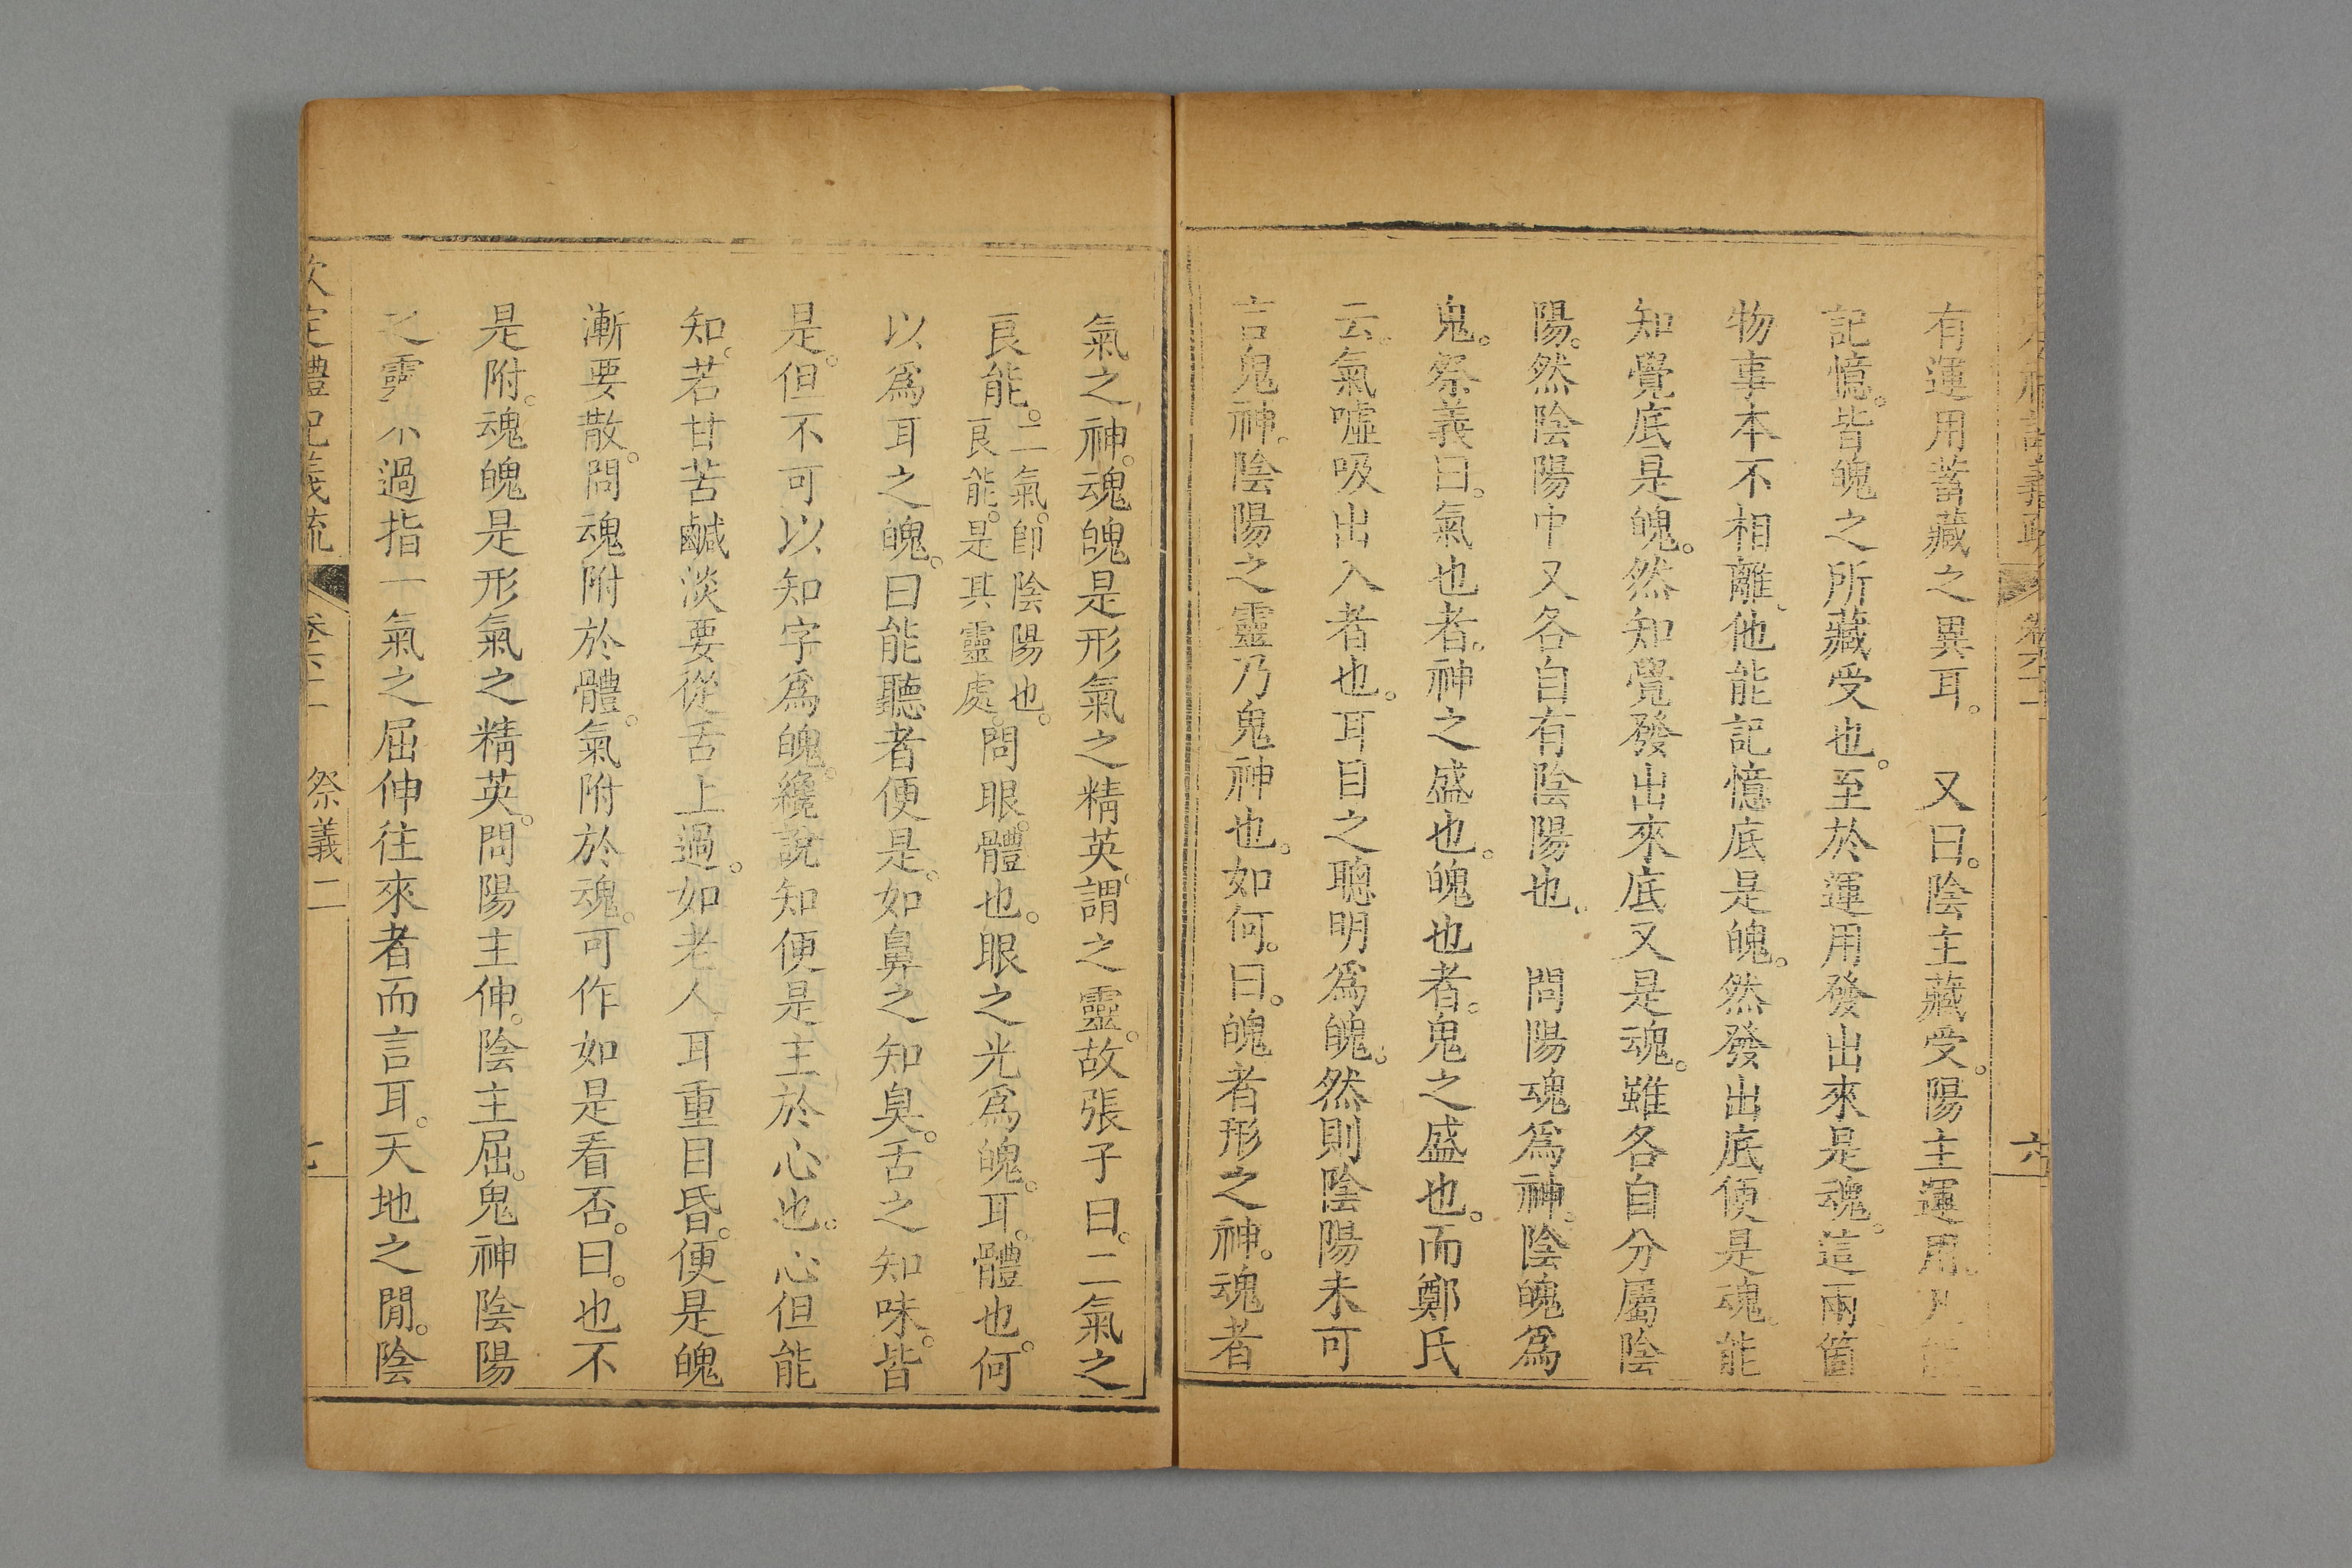 有運用蓄藏之異耳。　又曰。陰主藏受。陽主運用。凡能
記憶。皆魄之所藏受也。至於運用發出來是魂。這兩箇
物事本不相離、他能記憶底是魄。然發出底便是魂。能
知覺底是魄。然知覺發出來底又是魂。雖各自分屬陰
陽。然陰陽中又各自有陰陽也、　問陽魂爲神。陰魄爲
鬼。祭義曰。氣也者。神之盛也。魄也者。鬼之盛也。而鄭氏
云。氣噓吸出入者也。耳目之聰明爲魄。然則陰陽未可
言鬼神。陰陽之靈乃鬼神也。如何。曰。魄者形之神。魂者
六
氣之神。魂魄是形氣之精英。謂之靈。故張子曰。二氣之
良能。二氣。卽陰陽也。良能。是其靈處。問眼。體也。眼之光爲魄。耳。體也。何
以爲耳之魄。曰能聽者便是。如鼻之知臭。舌之知味。皆
是。但不可以知字爲魄。纔說知便是主於心也。心但能
知。若甘苦鹹淡要從舌上過。如老人耳重目昏。便是魄
漸要散。問魂附於體。氣附於魂。可作如是看否。曰。也不
是附。魂魄是形氣之精英。問陽主伸。陰主屈。鬼神陰陽
之靈不過指一氣之屈伸往來者而言耳。天地之閒。陰
欽定禮記義疏　卷六十二　祭義二　七